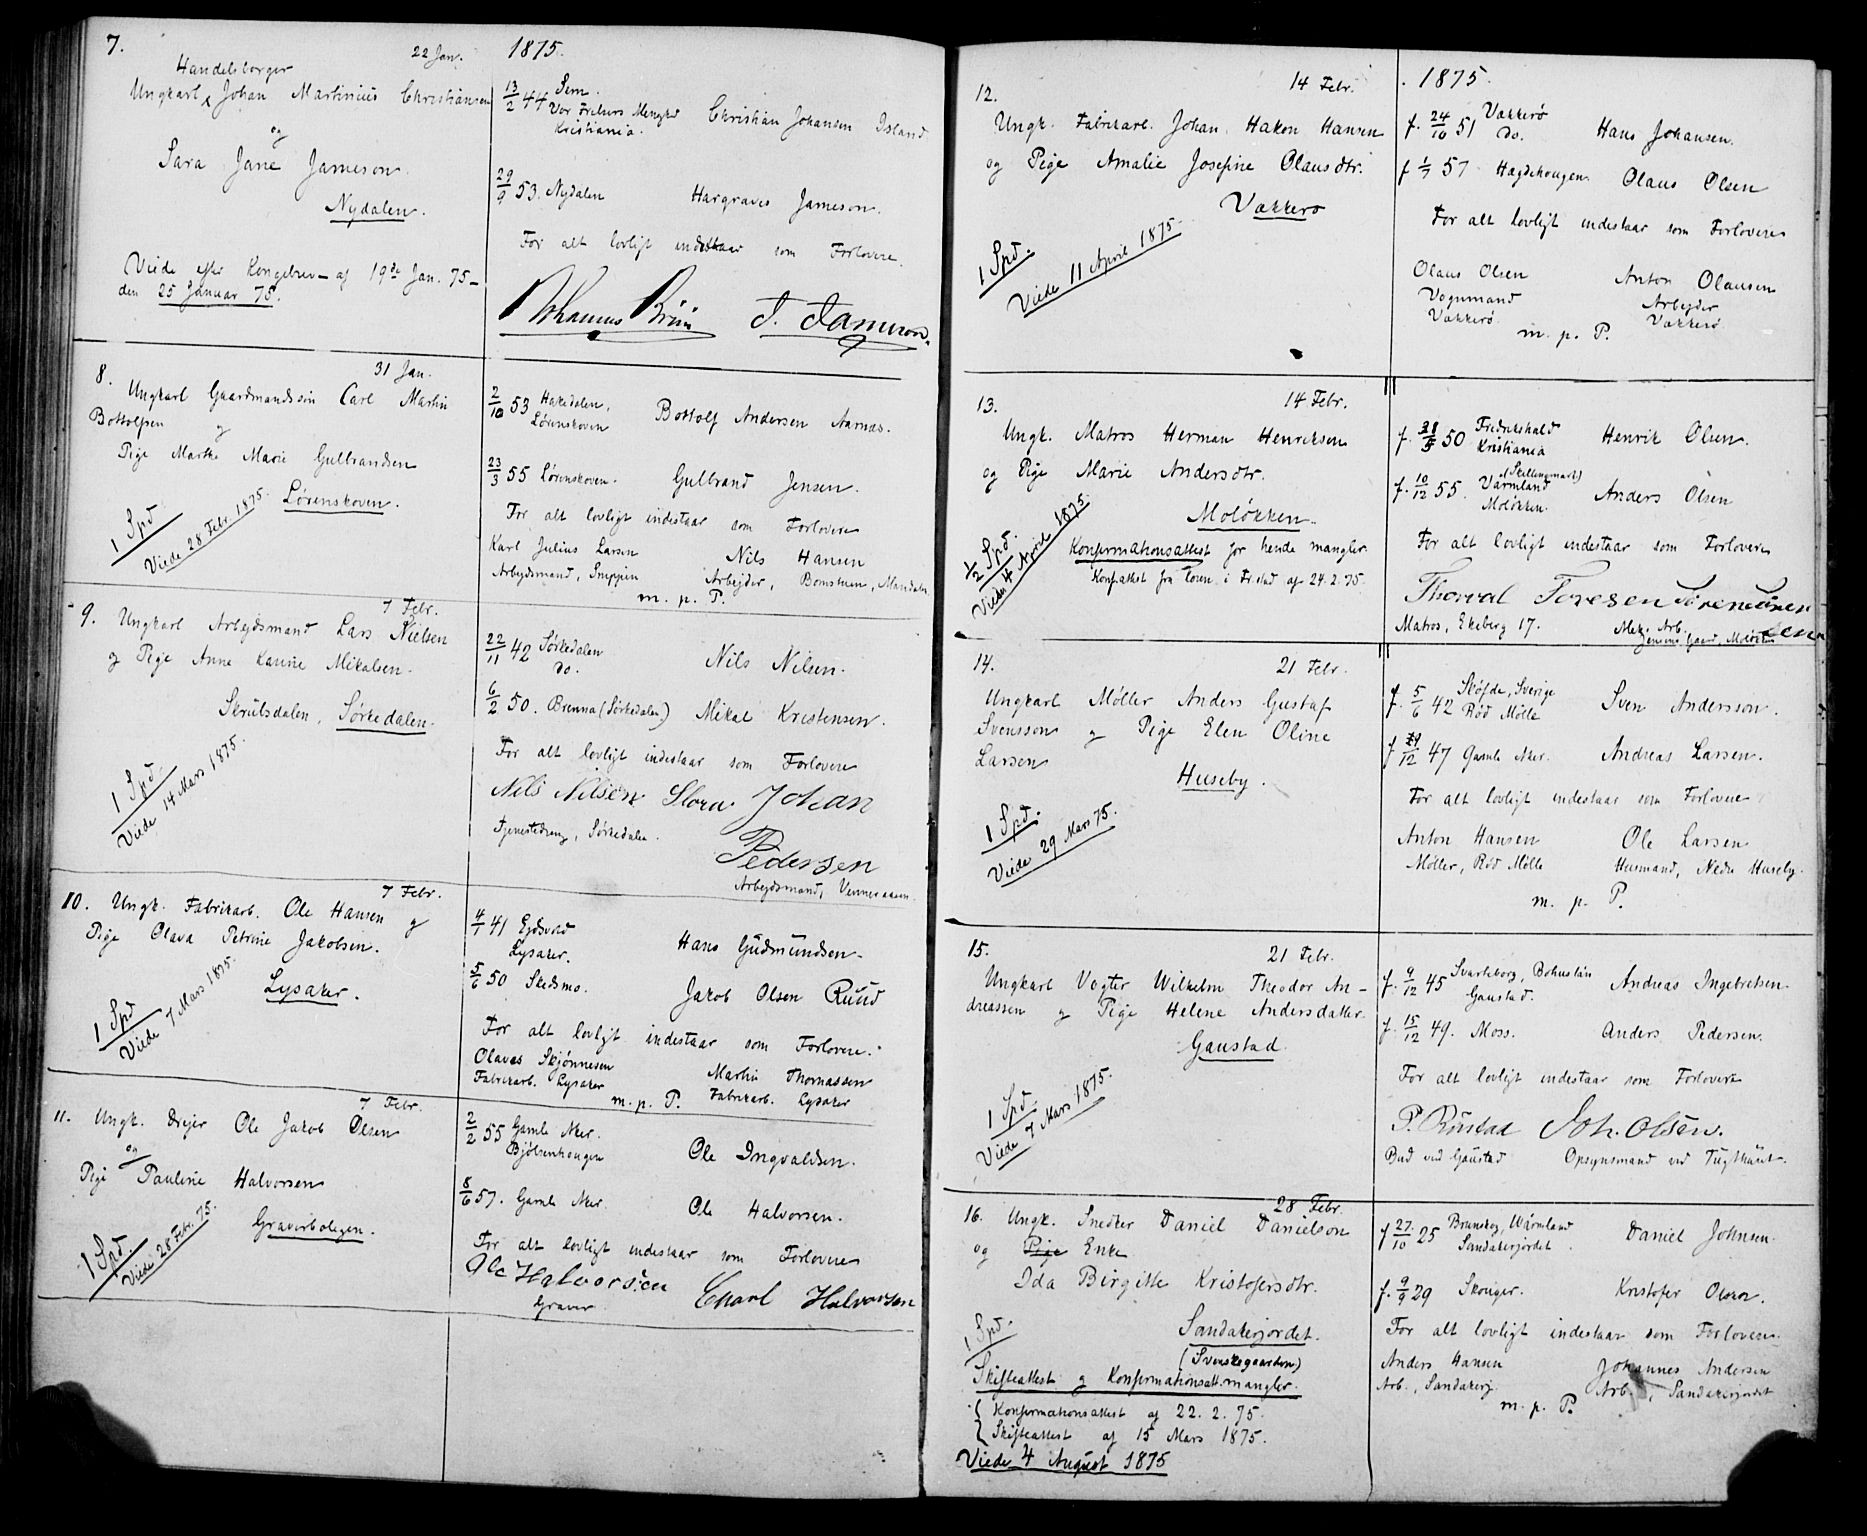 7.
22 Jan.
1875.
Handelsborger
Ungkarl Johan Martinius Christiansen
og
Sara Jane Jameson.
Nydalen.
Viede efter Kongebrev af 19de Jan. 75
den 25 Januar 75.
13/2 44 Sem.
Vor Frelsers Menighed
Kristiania.
Christian Johansen Island
29/9 53. Nydalen
Hargraves Jameson.
For alt lovligt indestaar som Forlovere.
Johannes Bruun J. Jameson.
8.
31 Jan.
Ungkarl Gaardmandssøn Carl Martin
Bottolfsen og
Pige Marthe Marie Gulbrandsen
Lørenskoven.
1 Spd
Viede 28 Febr. 1875.
2/10 53 Hakedalen,
Lørenskoven
Bottolf Andersen Aarnæs.
23/3 55 Lørenskoven.
Gulbrand Jensen.
For alt lovligt indestaar som Forlovere
Karl Julius Larsen
Arbejdsmand,
Nils Hansen
Arbejder,
m. p. P.
9.
7 Febr.
Ungkarl Arbejdsmand Lars Nielsen
og Pige Anne Karine Mikalsen.
Sørkedalen.
1 Spd.
Viede 14 Mars 1875.
22/11 42 Sørkedalen
do.
Nils Nilsen.
6/2 50. Brenna (Sørkedalen)
Mikal Kristensen.
For alt lovligt indestaar som Forlovere
Nils Nilsen
Tjenestedreng, Sørkedalen.
Johan
Pedersen
Arbejdsmand,
10.
7 Febr.
Ungk. Fabrikarb. Ole Hansen og
Pige Olava Petrine Jakobsen.
Lysaker.
1 Spd
Viede 7 Mars 1875.
4/1 41 Ejdsvold
Lysaker.
Hans Gudmundsen.
5/6 50 Skedsmo.
Jakob Olsen Ruud
For alt lovligt indestaar som Forlovere.
Olaves Skjønnesen
Fabrikarb. Lysaker
Martin Thomassen
Fabrikarb. Lysaker
m. p. P.
11.
7 Febr.
Ungk. Drejer Ole Jakob Olsen
og
Pige Pauline Halvorsen
Graverboligen.
1 Spd.
Viede 28 Febr. 75.
2/2 55 Gamle Aker.
Bjølsenhougen
Ole Ingvaldsen.
8/6 57. Gamle Aker.
Ole Halvorsen.
For alt lovligt indestaar som Forlovere
Ole Halvorsen
Graver.
Charl Halvorsen
12.
14 Febr.
1875.
Ungk. Fabrikarb. Johan Hakon Hansen
og Pige Amalie Josefine Olausdtr.
Vækkerø
1 Spd.
Viede 11 April 1875.
f. 24/10 51 Vækkerø
Do.
Hans Johansen.
f 1/7 57 Hagdehougen
Olaus Olsen
For alt lovligt indestaar som Forlovere
Olaus Olsen
Vognmand
Vækkerø.
Anton Olausen
Arbejder
Vækkerø.
m. p. P.
13.
14 Febr.
Ungk. Matros Herman Henriksen
og Pige Marie Andersdtr.
Moløkken.
1/2 Spd.
Viede 4 April 1875
Konfirmationsattest for hende mangler.
Konf.attest fra i Fr.stad af 24.2.75.
50 Fredrikshald
Kristiania
Henrik Olsen.
f. 10/12 55. (Skillingmark)
Värmland
Moløkken.
Anders Olsen
For alt lovligt indestaar som Forlovere
Thorval Toresen
Matros, Ekeberg 17.
Mek. Arb.
14.
21 Febr.
Ungkarl Møller Anders Gustaf
Svensson og Pige Elen Oline
Larsen
Huseby.
1 Spd.
Viede 29 Mars 75.
f. 5/6 42 Skøfde, Sverige
Rød Mølle
Sven Andersson.
47 Gamle Aker.
Andreas Larsen.
For alt lovligt indestaar som Forlovere
Anton Hansen
Møller, Rød Mølle
Ole Larsen
Husmand, Nedre Huseby.
m. p. P.
15.
21 Febr.
Ungkarl Vogter Wilhelm Theodor An-
dreassen og Pige Helene Andersdatter
Gaustad.
1 Spd.
Viede 7 Mars 1875.
f. 9/12 45 Svarteborg, Bohuslän
Gaustad.
Andreas Ingebretsen.
f. 15/12 49. Moss.
Anders Pedersen.
For alt lovligt indestaar som Forlovere
P. Rustad
Bud ved Gaustad
Joh. Olsen.
Opsynsmand ved Tugthuset.
16.
28 Febr.
Ungk. Snedker Daniel Danielson
og Pige Enke
Ida Birgitte Kristofersdtr.
1 Spd.
Sandakerjordet.
(Svenskegaarden)
Skifteattest og Konfirmationsatt. mangler.
Konfirmationsattest af 22. 2. 75.
Skifteattest af 15 Mars 1875.
Viede 4 August 1875
f 27/10 25 Brunskog, Wärmland
Sandakerjordet.
Daniel Johnsen.
f. 9/9 29 Skouger.
Kristofer Olsen.
For alt lovligt indestaar som Forlovere.
Anders Hansen
Arb., Sandakerj.
Johannes Andersen
Arb., Sandakerjordet
m. p. P.